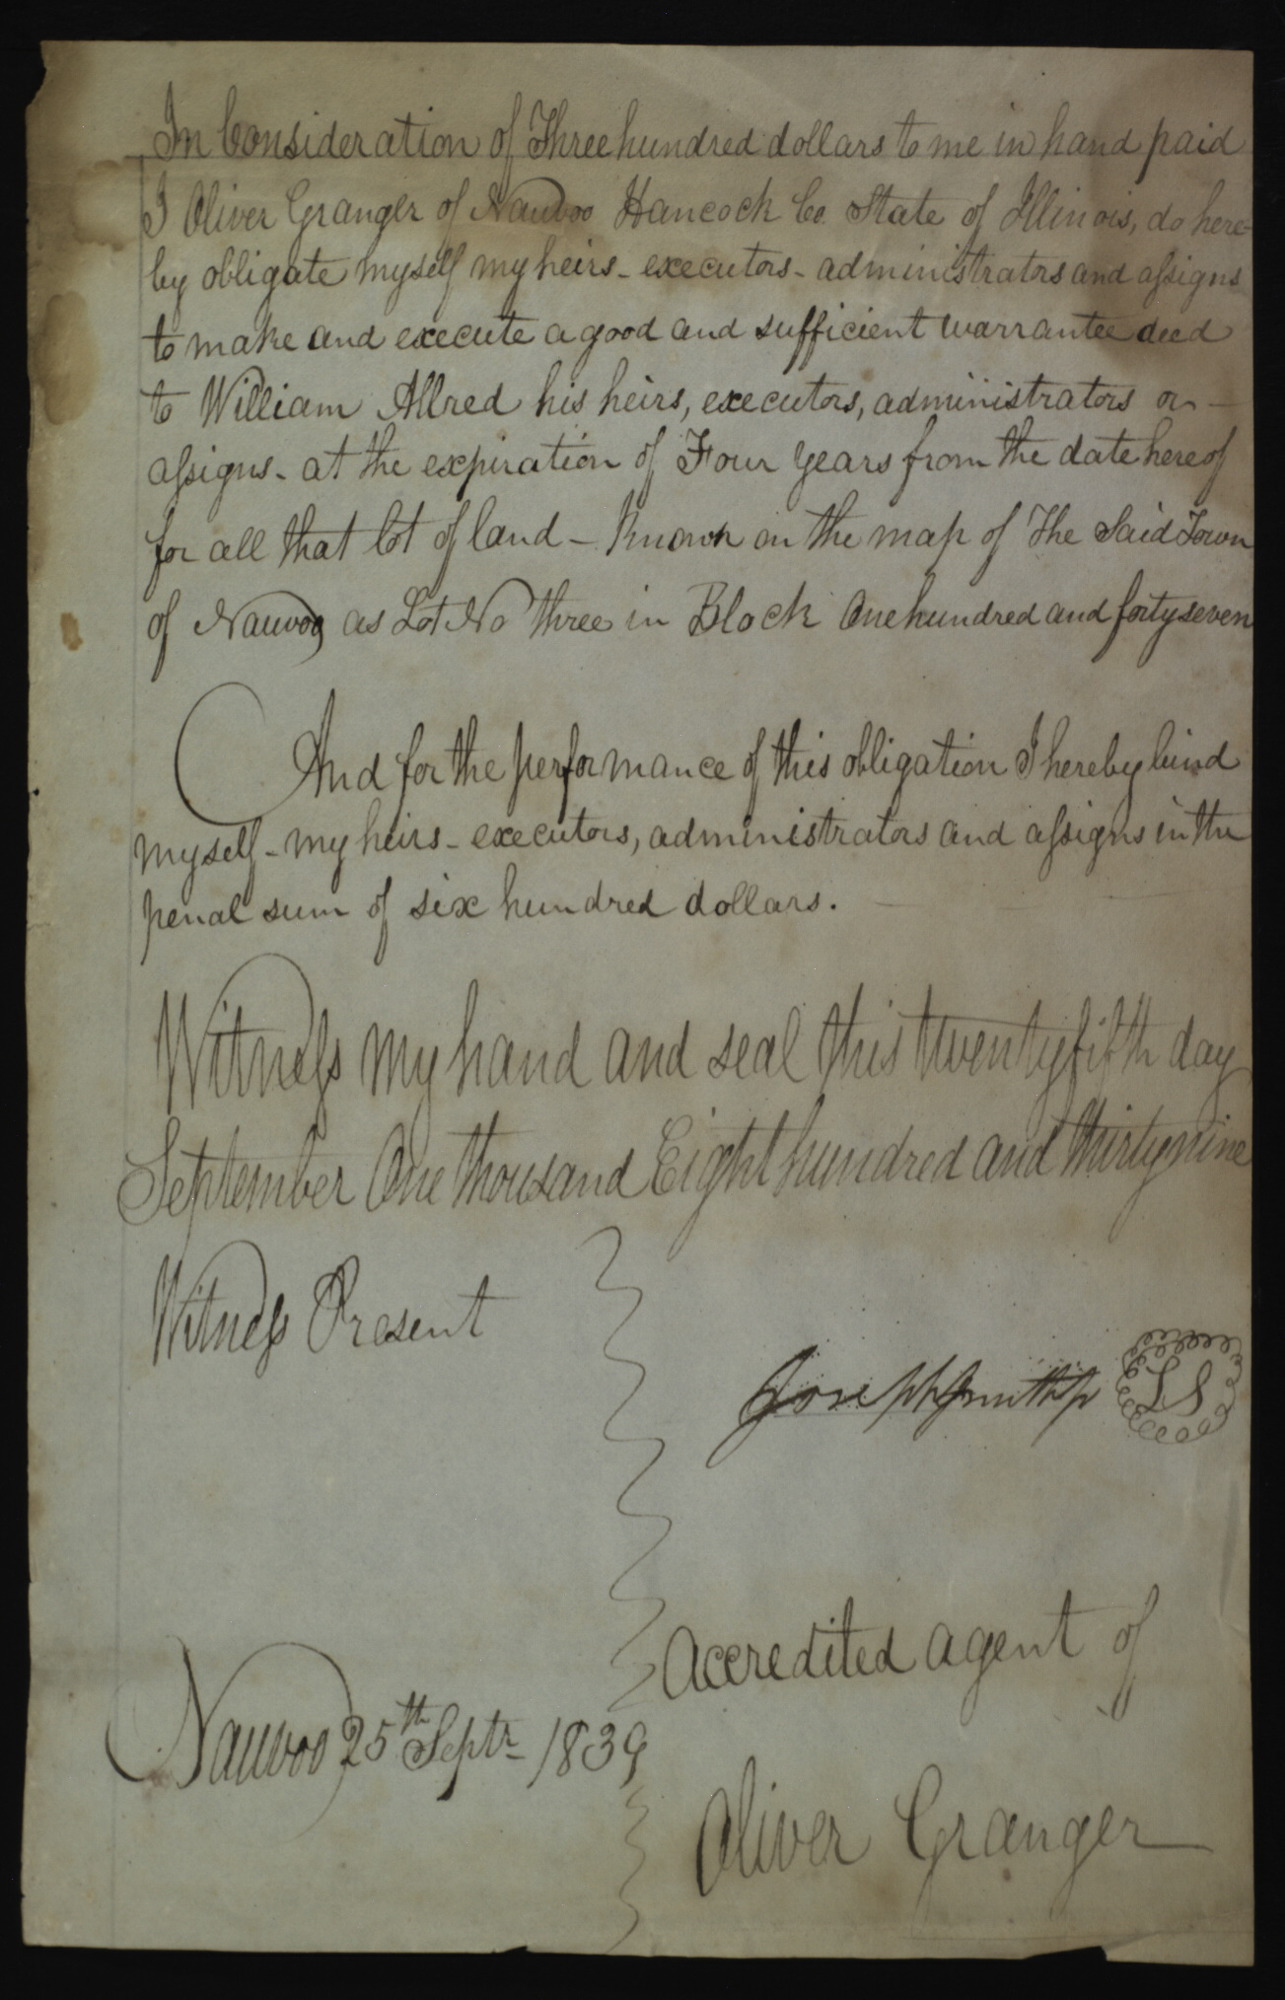 In Consideration of Three hundred dollars to me in hand paid
I Oliver Granger of Nauvoo Hancock Co. State of Illinois, do here-
by obligate myself my heirs - executors - administrators and assigns
to make and execute a good and sufficient warrantee deed
to William Allred his heirs, executors, administrators or -
assigns - at the expiration of Four years from the date hereof
for all that lot of land - Known on the map of The Said Town
of Nauvoo, as Lot No three in Block One hundred and forty seven
And for the performance of this obligation I hereby bind
myself - my heirs - executors, administrators and assigns in the
penal sum of six hundred dollars. -
Witness my hand and seal this twenty fifth day
September One thousand Eight hundred and thirty nine
Witness Present
Joseph Smith Jr L S
Accredited agent of
Nauvoo 25th Septr 1839
Oliver Granger